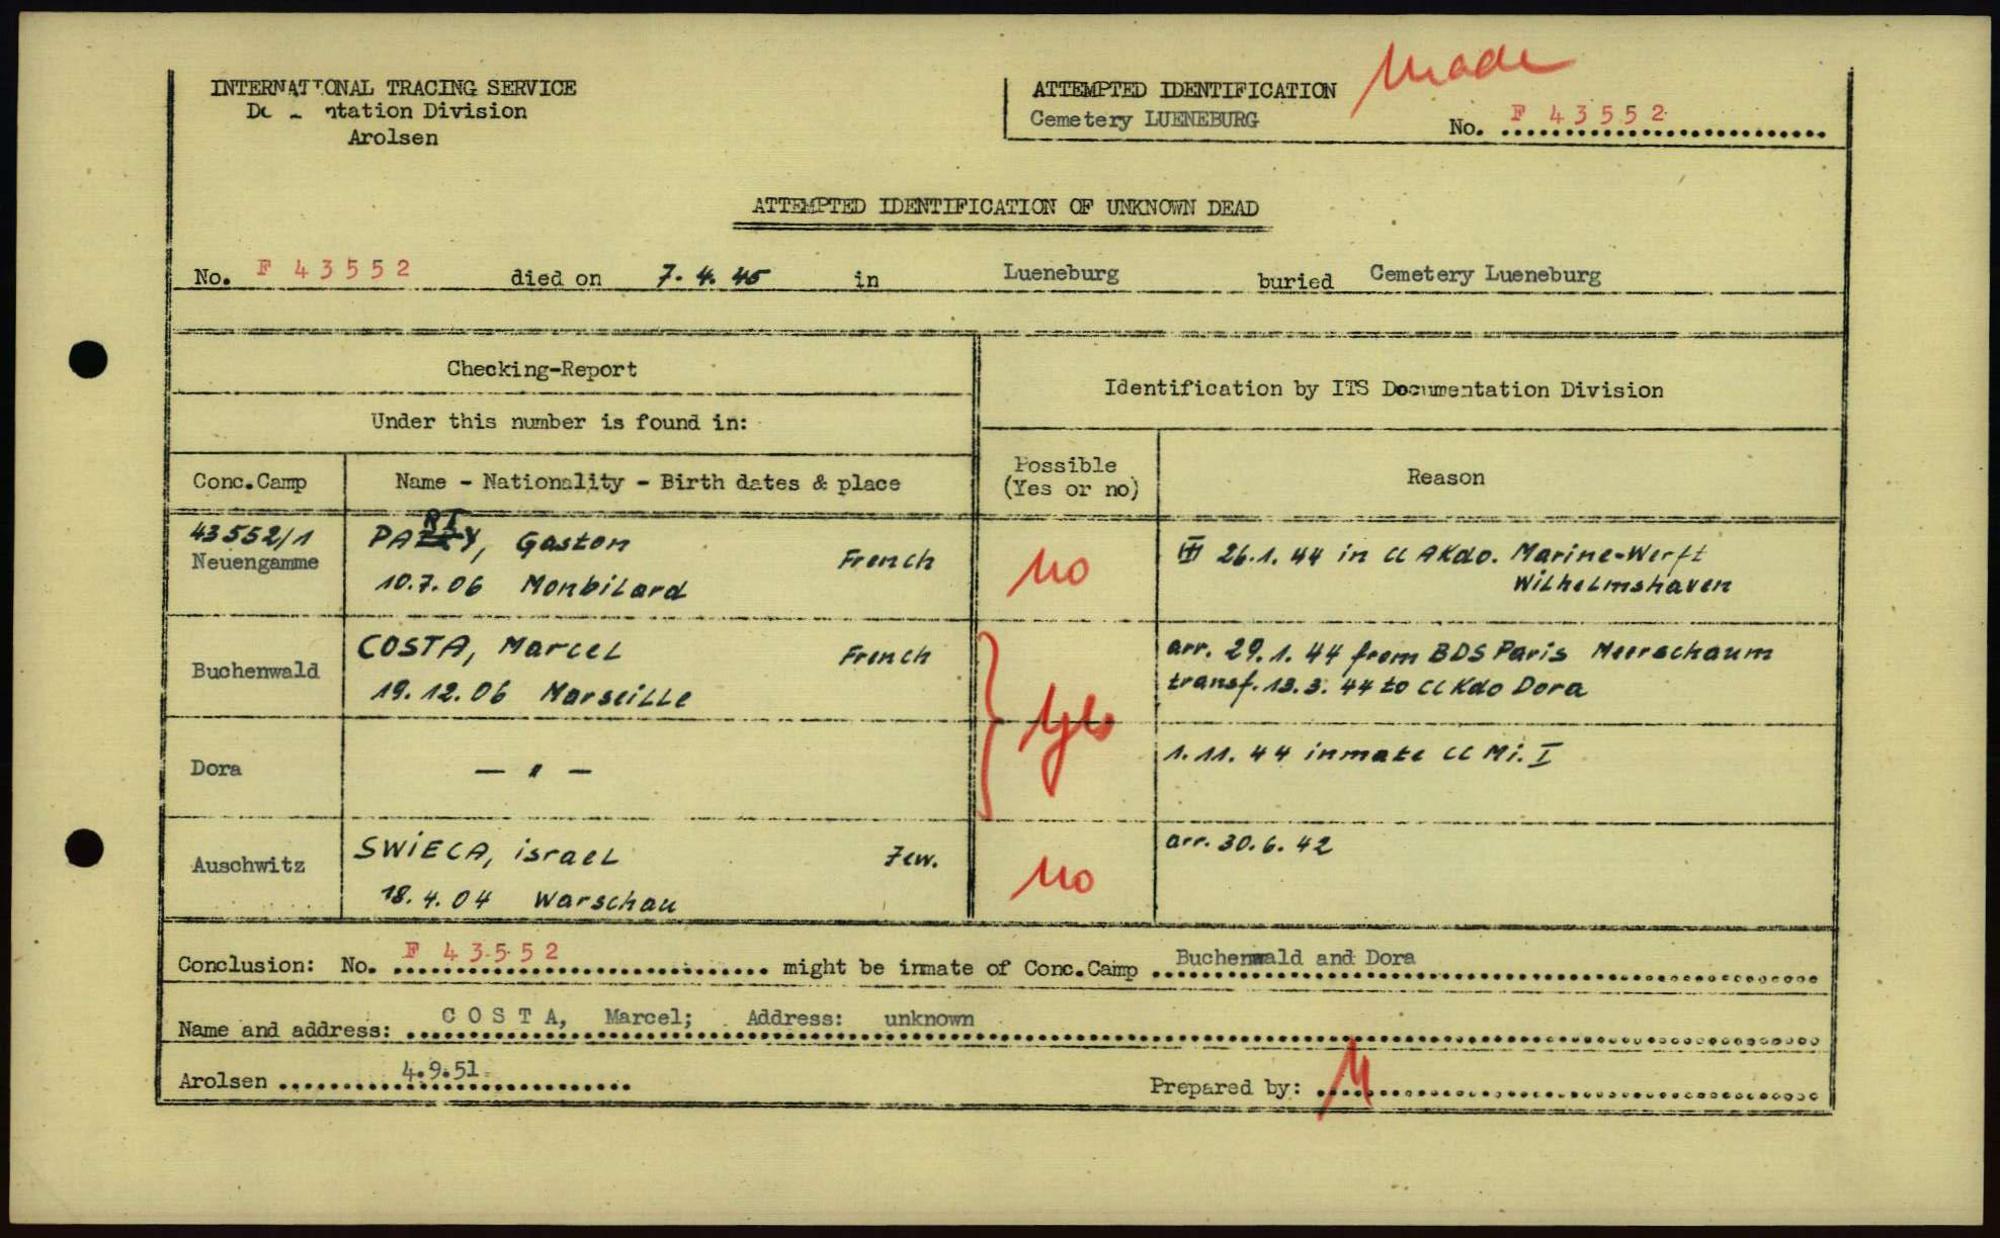 INTERNATIONAL TRACING SERVICE
ntation Division
Arolsen
ATTEMPTED IDENTIFICATION
Cemetery LUENEBURG
No. F 43552
ATTEMPTED IDENTIFICATION OF UNKNOWN DEAD
No. F 43552 died on 7.4.45 in Lueneburg buried Cemetery Lueneburg
Checking-Report
Identification by ITS Documentation Division
Under this number is found in:
Conc.Camp
Name - Nationality - Birth dates & place
Possible
(Yes or no)
Reason
43552/1
Neuengamme
Gaston
French
10.7.06 Monbilard
no
26.1.44 in CC AKdo. Marine-Werft
Wilhelmshaven
Buchenwald
COSTA, Marcel
French
19.12.06 Marseille
yes
arr. 29.1.44 from BDS Paris Meerschaum
transf. 13.3.44 to CC Kdo Dora
Dora
– " –
1.11.44 inmate CC Mi. I
Auschwitz
SWIECA, israel
Jew.
18.4.04 Warschau
no
arr. 30.6.42
Conclusion: No. F 43552 might be inmate of Conc.Camp Buchenwald and Dora
Name and address: COSTA, Marcel; Address: unknown
Arolsen 4.9.51
Prepared by: